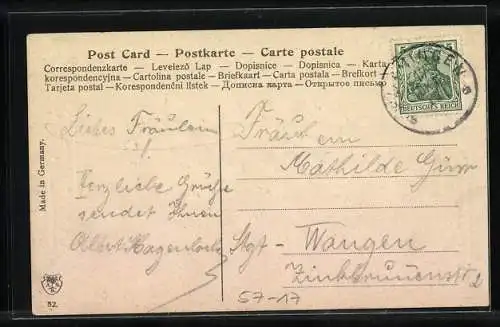 Post Card — Postkarte — Carte postale
Correspondenzkarte — Levelező Lap — Dopisnice — Dopisnica — Karta
korespondencyjna — Cartolina postale — Briefkaart — Carta postala — Brefkort —
Tarjeta postal — Korespondenční lístek — Дописна карта — Открытое письмо
DEUTSCHES REICH
Liebes Fräulein
Herzliche Grüße
sendet Ihnen
Albert Hagenloch
Fräulein
Mathilde
Stgt - Wangen
2
57-17
Made in Germany.
52.